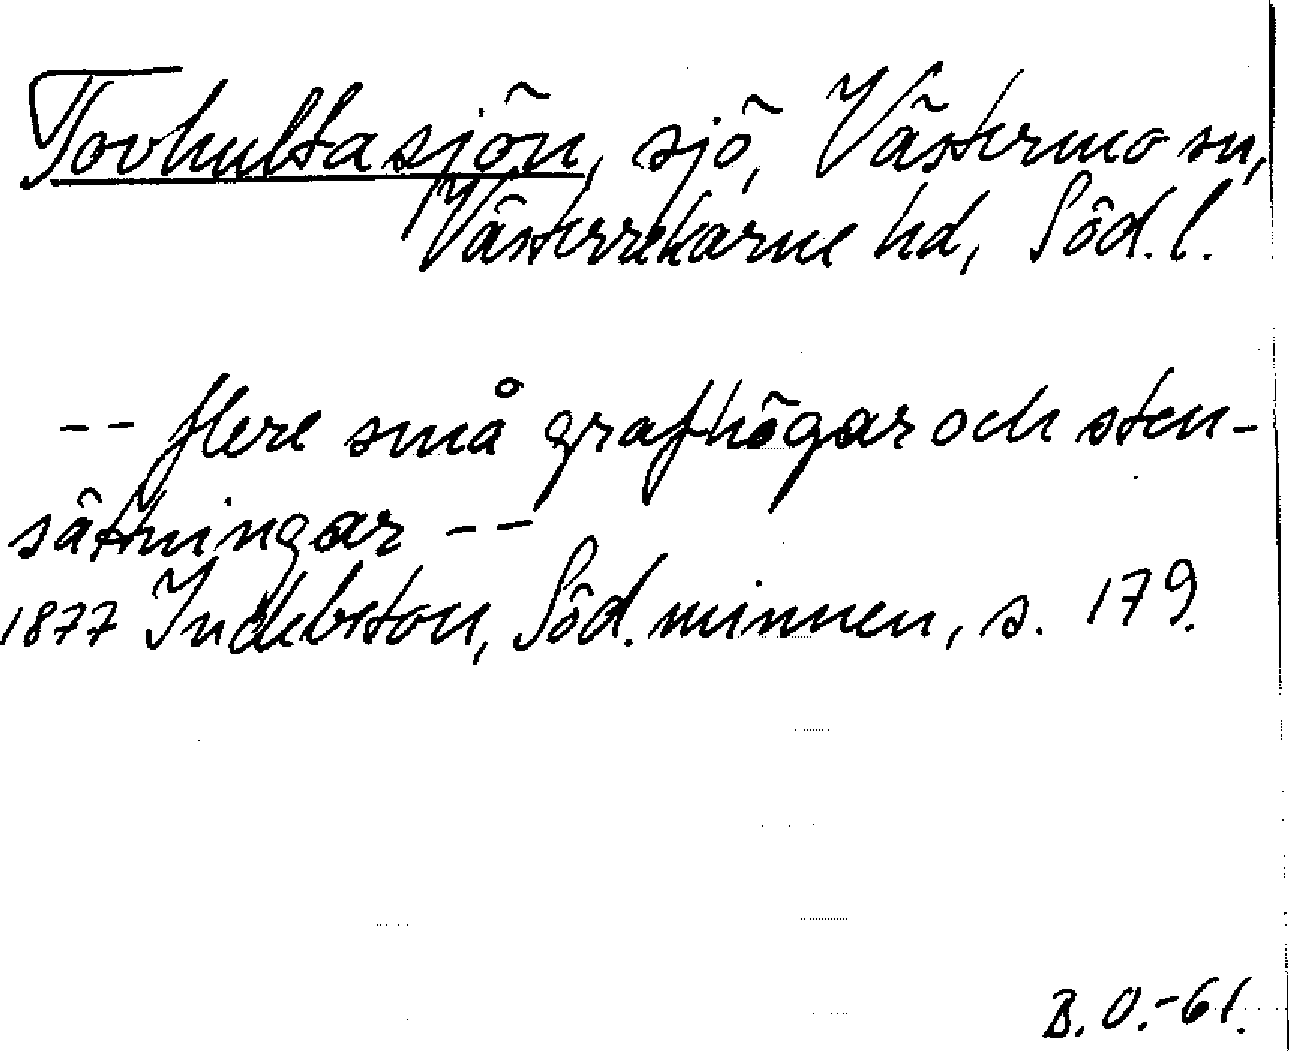 Tovhultasjön, sjö, Västermo sn,
Västerrekarne hd, Söd. l.
-- flere små grafhögar och sten-
sättningar --
1877 Indebetou, Söd. minnen, s. 179.
B. O.-61.